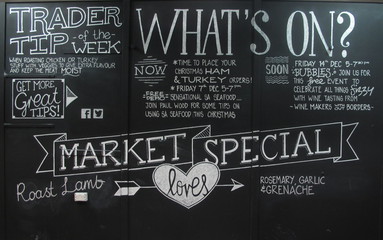 TRADER
TIP -of-the-
WEEK
WHEN ROASTING CHICKEN OR TURKEY
STUFF WITH VEGGIES TO GIVE EXTRA FLAVOUR
AND KEEP THE MEAT MOIST
GET MORE
Great
TIPS!
WHAT'S ON?
NOW
*TIME TO PLACE YOUR
CHRISTMAS HAM
& TURKEY ORDERS!
*FRIDAY 7th DEC 5-7pm
FREE SENSATIONAL SA SEAFOOD
JOIN PAUL WOOD FOR SOME TIPS ON
USING SA SEAFOOD THIS CHRISTMAS
SOON
FRIDAY 14th DEC 5-7pm
BUBBLES! JOIN US FOR
this free EVENT TO
CELEBRATE ALL THINGS
WITH WINE TASTING FROM
- WINE MAKERS
MARKET SPECIAL
Roast Lamb
loves
ROSEMARY, GARLIC
& GRENACHE